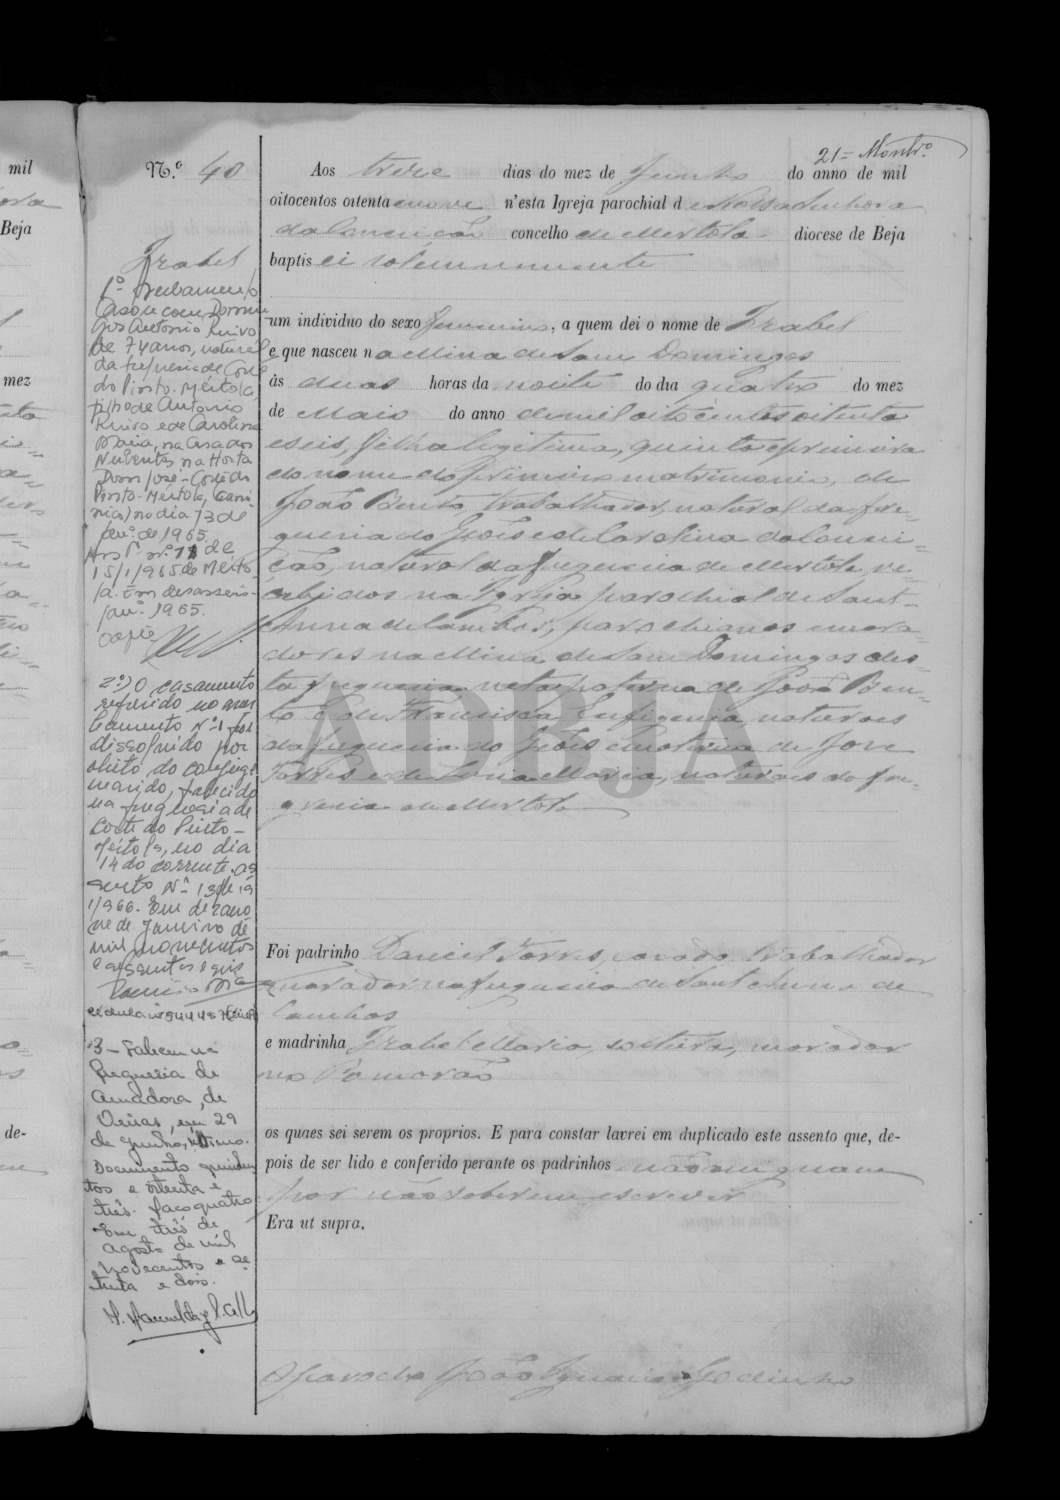 21= Montrº
Nº 40
Aos treze dias do mez de Junho do anno de mil
oitocentos oitenta e nove n'esta Igreja parochial d e Nossa Senhora
da Conceição concelho de Mertola diocese de Beja
baptis ei solemnemente
um individuo do sexo femenino, a quem dei o nome de Izabel
e que nasceu n a Mina de Sam Domingos
ás duas horas da noite do dia quatro do mez
de Maio do anno de mil oitocentos oitenta
e seis, filha legitima, quinta e primeira
do nome do primeiro matrimonio, de
João Bento, trabalhador, natural da fre-
guesia do Geões e de Carolina da Concei-
ção, natural da freguesia de Mertola re-
cebidos na Igreja parochial de Sant-
Anna de Cambas, parochianos e mora-
dores na Mina de Sam Domingos des-
ta freguesia neta paterna de João Ben-
to e de Francisca Eufigenia, naturaes
da freguesia do Geões e materna de José
Torres e de Anna Maria, naturaes da fre-
guesia de Mertola
Foi padrinho Daniel Torres, casado trabalhador
morador na freguesia de Sant'Anna de
Cambas
e madrinha Izabel Maria, solteira, morador
no Pomarão
os quaes sei serem os proprios. E para constar lavrei em duplicado este assento que, de-
pois de ser lido e conferido perante os padrinhos não assignam
por não saberem escrever
Era ut supra.
O parocho João Ignacio Godinho
Izabel
1º Averbamento
Casou com Domin
gos Antonio Ruivo
de 74 anos, natural
da freguesia de Corte
do Pinto, Mértola,
filho de Antonio
Ruivo e de Carolina
Maria, na Casa dos
Nubentes na Horta
Dom José - Corte do
Pinto - Mértola,
no dia 13 de
janº de 1965.
Ass. nº 11 de
15/1/965 de Mérto-
la. Em dezasseis
janº 1965.
2º) O casamento
referido no aver
bamento Nº 1 foi
dissolvido por
obito do conjuge
marido, falecido
na freguesia de
Corte do Pinto -
Mértola, no dia
14 do corrente. As
sento Nº 13 de
1/966. Em dezano
ve de Janeiro de
mil novecentos
e sessenta e seis
3 - Faleceu na
freguesia de
Amadora, de
Oeiras, em 29
de Junho, último.
Documento quinhen
tos e oitenta e
três. Maço quatro
Em três de
Agosto de mil
novecentos e se
tenta e dois.
ADBJA
mil
Beja
mez
de-